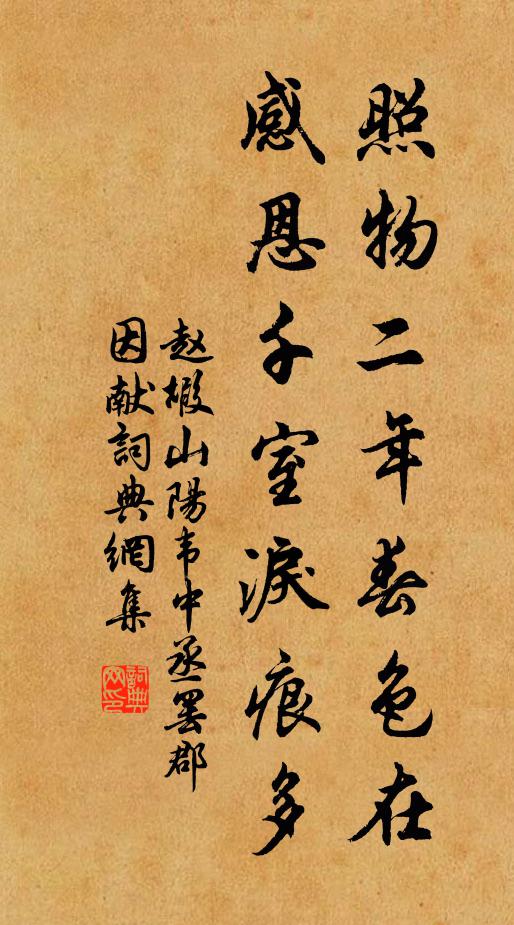 照物二年春色在
感恩千室淚痕多
赵嘏山陽韦中丞罢郡
因献詞典網集
詞典网印